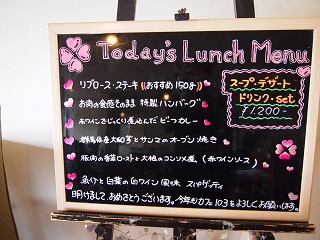 Today's Lunch Menu
リブロース・ステーキ (おすすめ 150g)
お肉の食感そのまま 特製 ハンバーグ
赤ワインでじっくり煮込んだ ビーフカレー
スープ・デザート
ドリンク・Set
¥1,200～
群馬県産大和芋とサンマのオーブン焼き
豚肉の香草ローストと大根のコンソメ煮 (赤ワインソース)
魚介と白菜の白ワイン風味 スパゲッティ
明けまして、おめでとうございます。今年もカフェ103をよろしくお願いします。